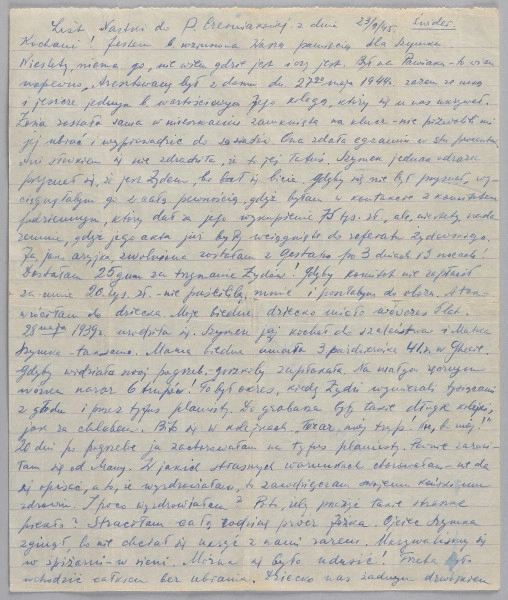 List Nastki do P. Cresniakskiej z dnia 23/9/45. Swider.
Kochani! Jestem b. wzruszona Waszą pamięcią dla Szymka.
Niestety, niema go, nie wiem gdzie jest i czy jest. Był na Pawiaku - to wiem
napewno. Aresztowany był z domu dn. 27go maja 1944r. razem ze mną
i jeszcze jednym b. wartościowym Jego kolegą, który się u nas ukrywał.
Żona została sama w mieszkaniu zamknięta na klucz - nie pozwolili mi
jej ubrać i wyprowadzić do sąsiadów. Ona zdała egzamin w stu procentach.
Ani słówkiem się nie zdradziła, że to jej Tatuś. Szymek jednak odrazu
przyznał się, że jest Żydem, bo bał się bicia. Gdyby się nie był przyznał, wy-
ciągnęłabym go z całą pewnością, gdyż byłam w kontakcie z komitetem
podziemnym, który dał za jego wykupienie 75 tys. zł., ale, niestety nada-
remnie, gdyż jego akta już były wciągnięte do referatu żydowskiego.
Ja, jako aryjka, zwolniona zostałam z Gestapo po 3 dniach i 3 nocach!
Dostałam 25 gum za trzymanie Żydów! Gdyby komitet nie zapłacił
za mnie 20 tys. zł. - nie puściliby mnie i poszłabym do obozu. A tak
wróciłam do dziecka. Moje biedne dziecko miało wówczas 5 lat.
28 maja 1939r. urodziła się. Szymek ją kochał do szaleństwa i Matka
Szymka - tak samo. Mama biedna umarła 3 października 41r. w Ghecie.
Gdyby widziała swój pogrzeb - gorzkoby zapłakała. Na małym czarnym
wózku naraz 6 trupów! To był okres, kiedy Żydzi wymierali tysiącami
z głodu i przez tyfus plamisty. Do grabarza były takie długie kolejki,
jak za chlebem. Bili się w kolejkach, "Tocar, mój trup! Nie, b. mój!"
20 dni po pogrzebie ja zachorowałam na tyfus plamisty. Pewnie zarazi-
łam się od Mamy. W jakich strasznych warunkach chorowałam - nie da
się opisać, a to, że wyzdrowiałam, to zawdzięczam swojemu końskiemu
zdrowiu. I poco wyzdrowiałam? Poto, żeby przeżyć takie straszne
piekło? Straciłam całą rodzinę prócz Józka. Ojciec Szymka
zginął, bo nie chciał się męczyć z nami razem. Ukrywaliśmy się
w spiżarni - w sieni. Można się było udusić! Trzeba było
schodzić całkiem bez ubrania. Dziecko nas żadnym dźwiękiem